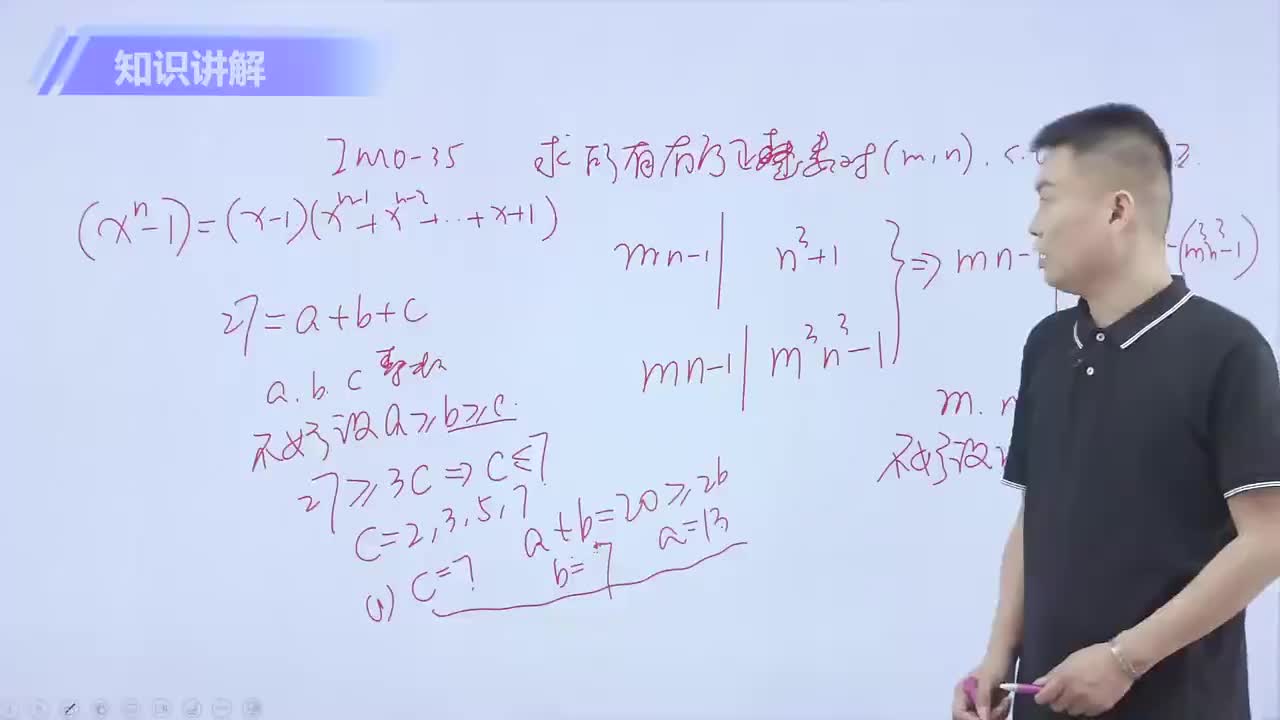 知识讲解
IMO-35 求所有的正整数对(m,n).
(xⁿ-1)=(x-1)(xⁿ⁻¹+xⁿ⁻²+…+x+1)
mn-1 | n³+1
⇒ mn- -(m³n³-1)
mn-1 | m³n³-1
27=a+b+c
a.b.c
不妨设a≥b≥c.
27≥3c⇒c≤7
c=2,3,5,7
a+b=20≥2b
(1) c=7 b=7 a=13
m.
不妨设